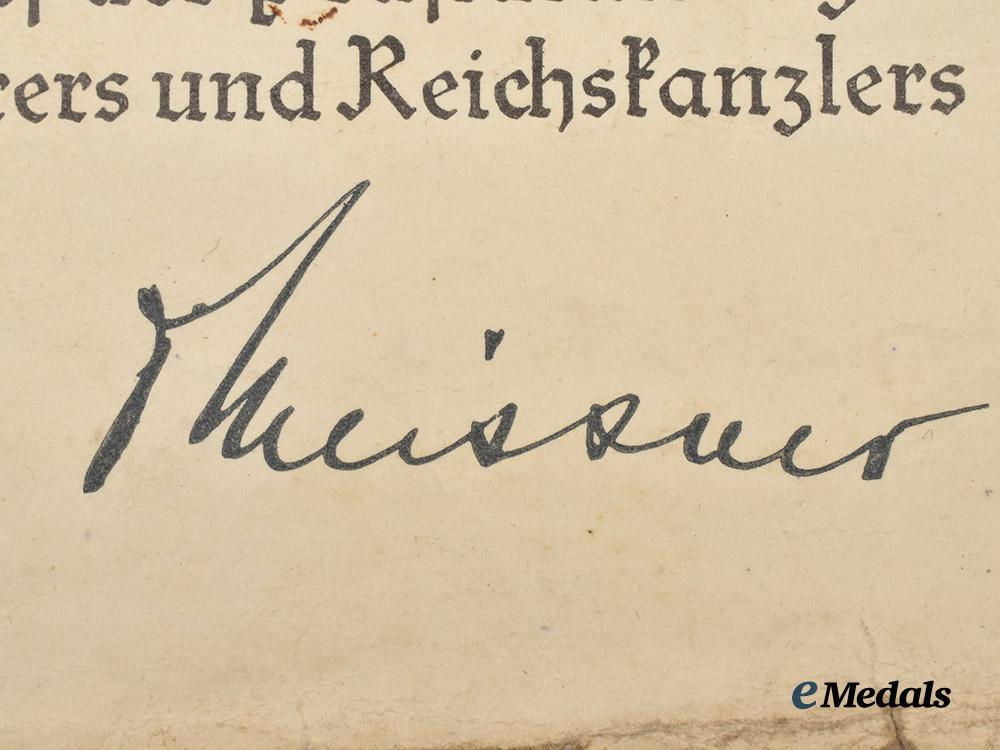 der
rers und Reichskanzlers
Meissner
eMedals